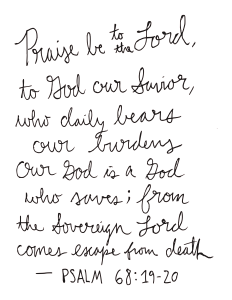 Praise be to the Lord,
to God our Savior,
who daily bears
our burdens
Our God is a God
who saves; from
the Sovereign Lord
comes escape from death
— PSALM 68:19-20